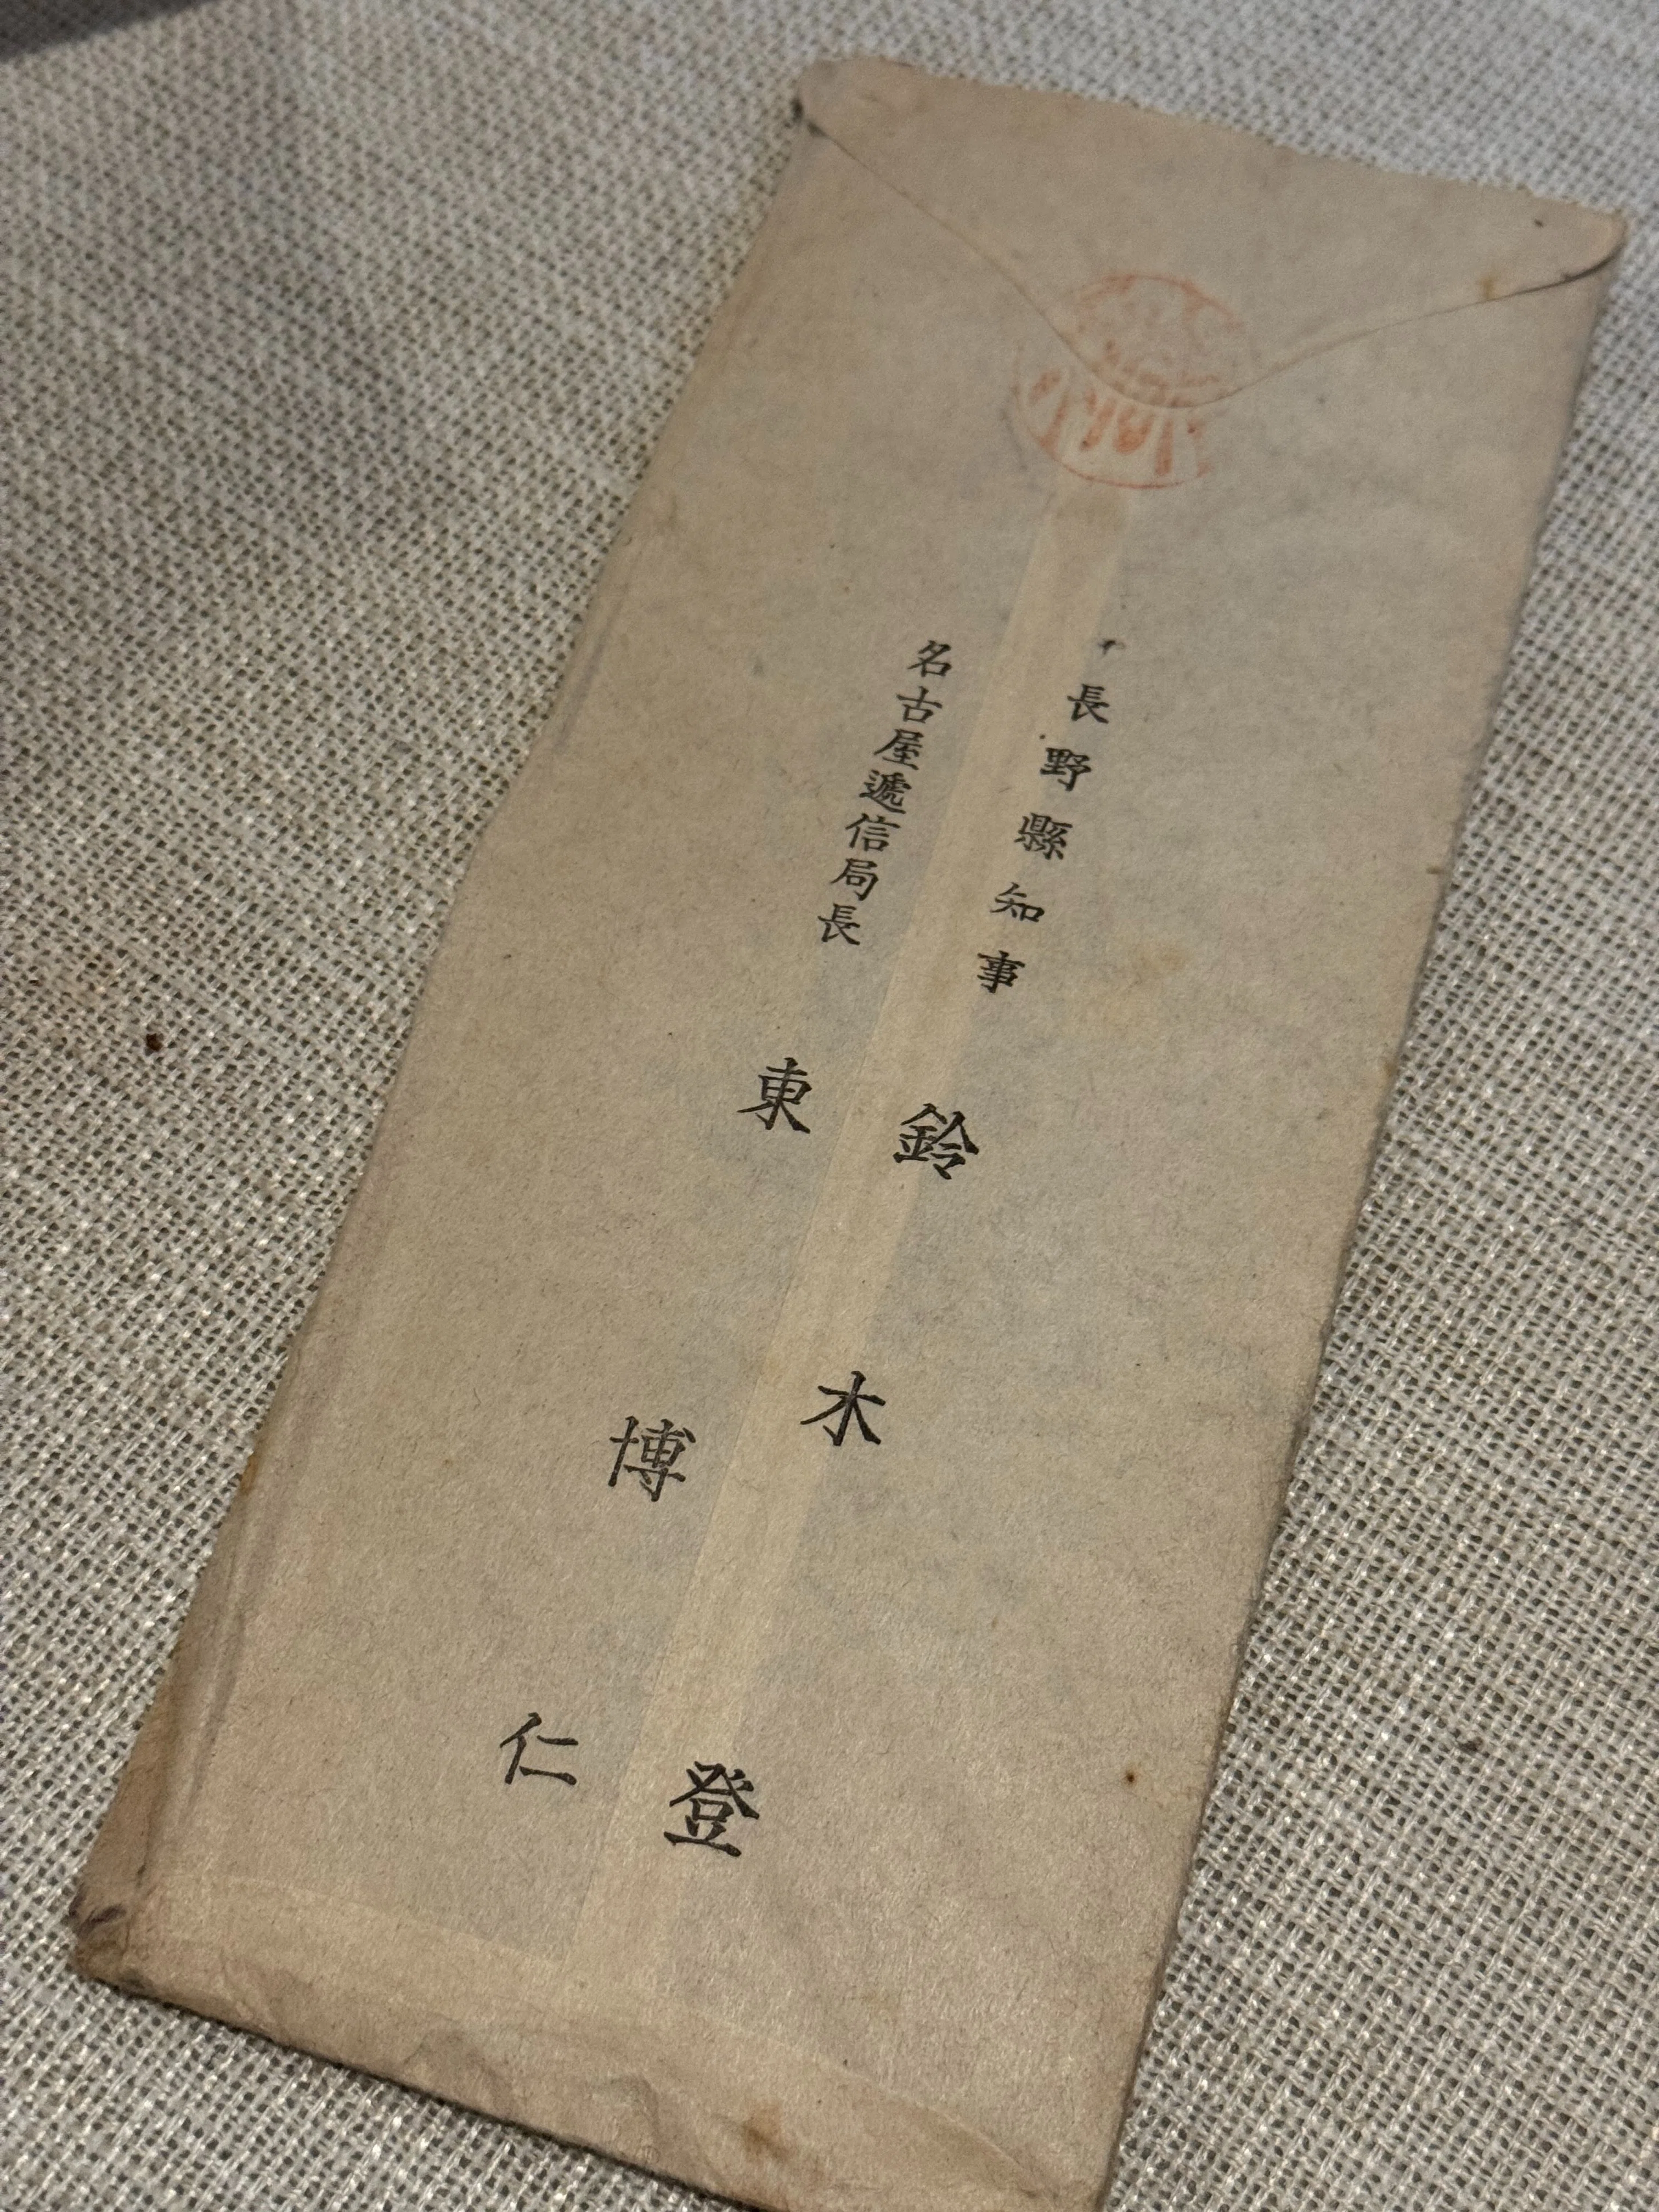 長野縣知事 鈴木登
名古屋遞信局長 東博仁